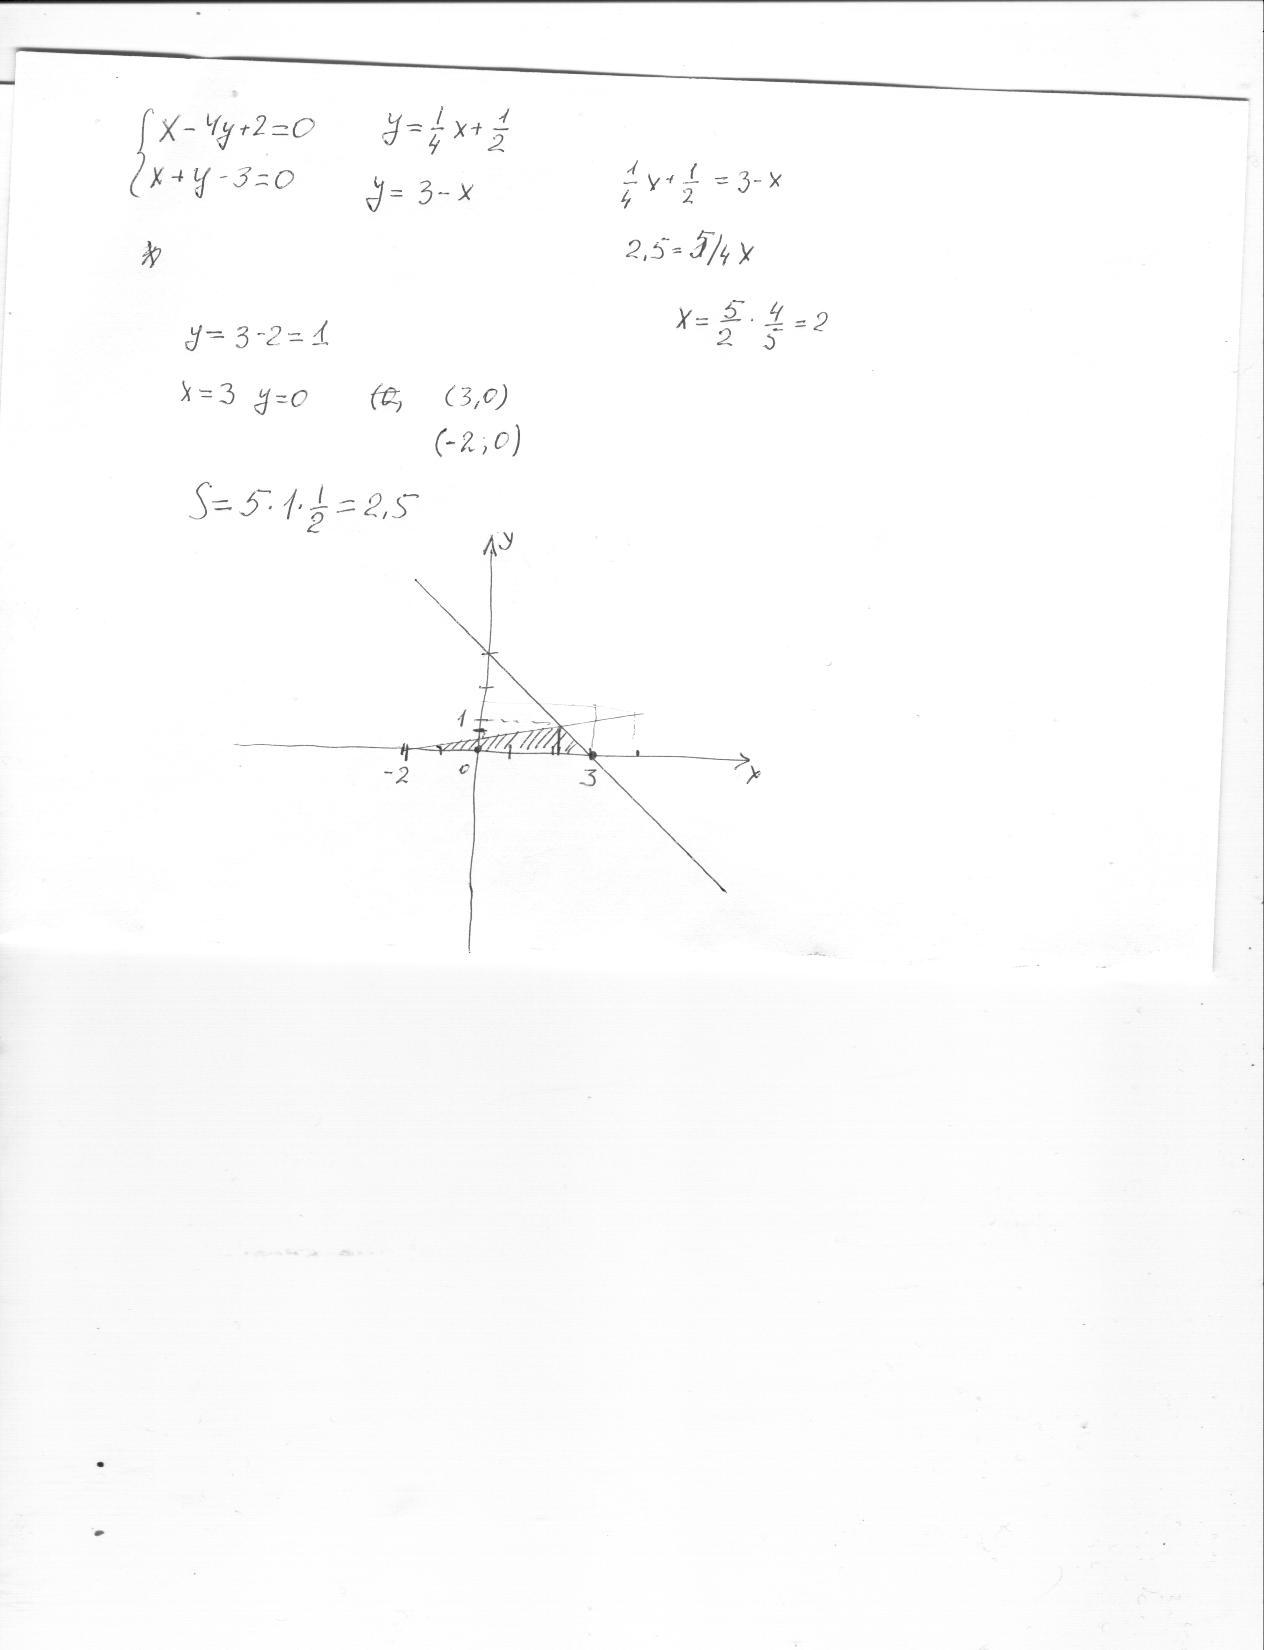 { x - 4y + 2 = 0    y = 1/4 x + 1/2
x + y - 3 = 0    y = 3 - x
1/4 x + 1/2 = 3 - x
2,5 = 5/4 x
x = 5/2 · 4/5 = 2
y = 3 - 2 = 1
x = 3  y = 0    (3,0)
(-2; 0)
S = 5 · 1 · 1/2 = 2,5
y
1
-2  0  3  x